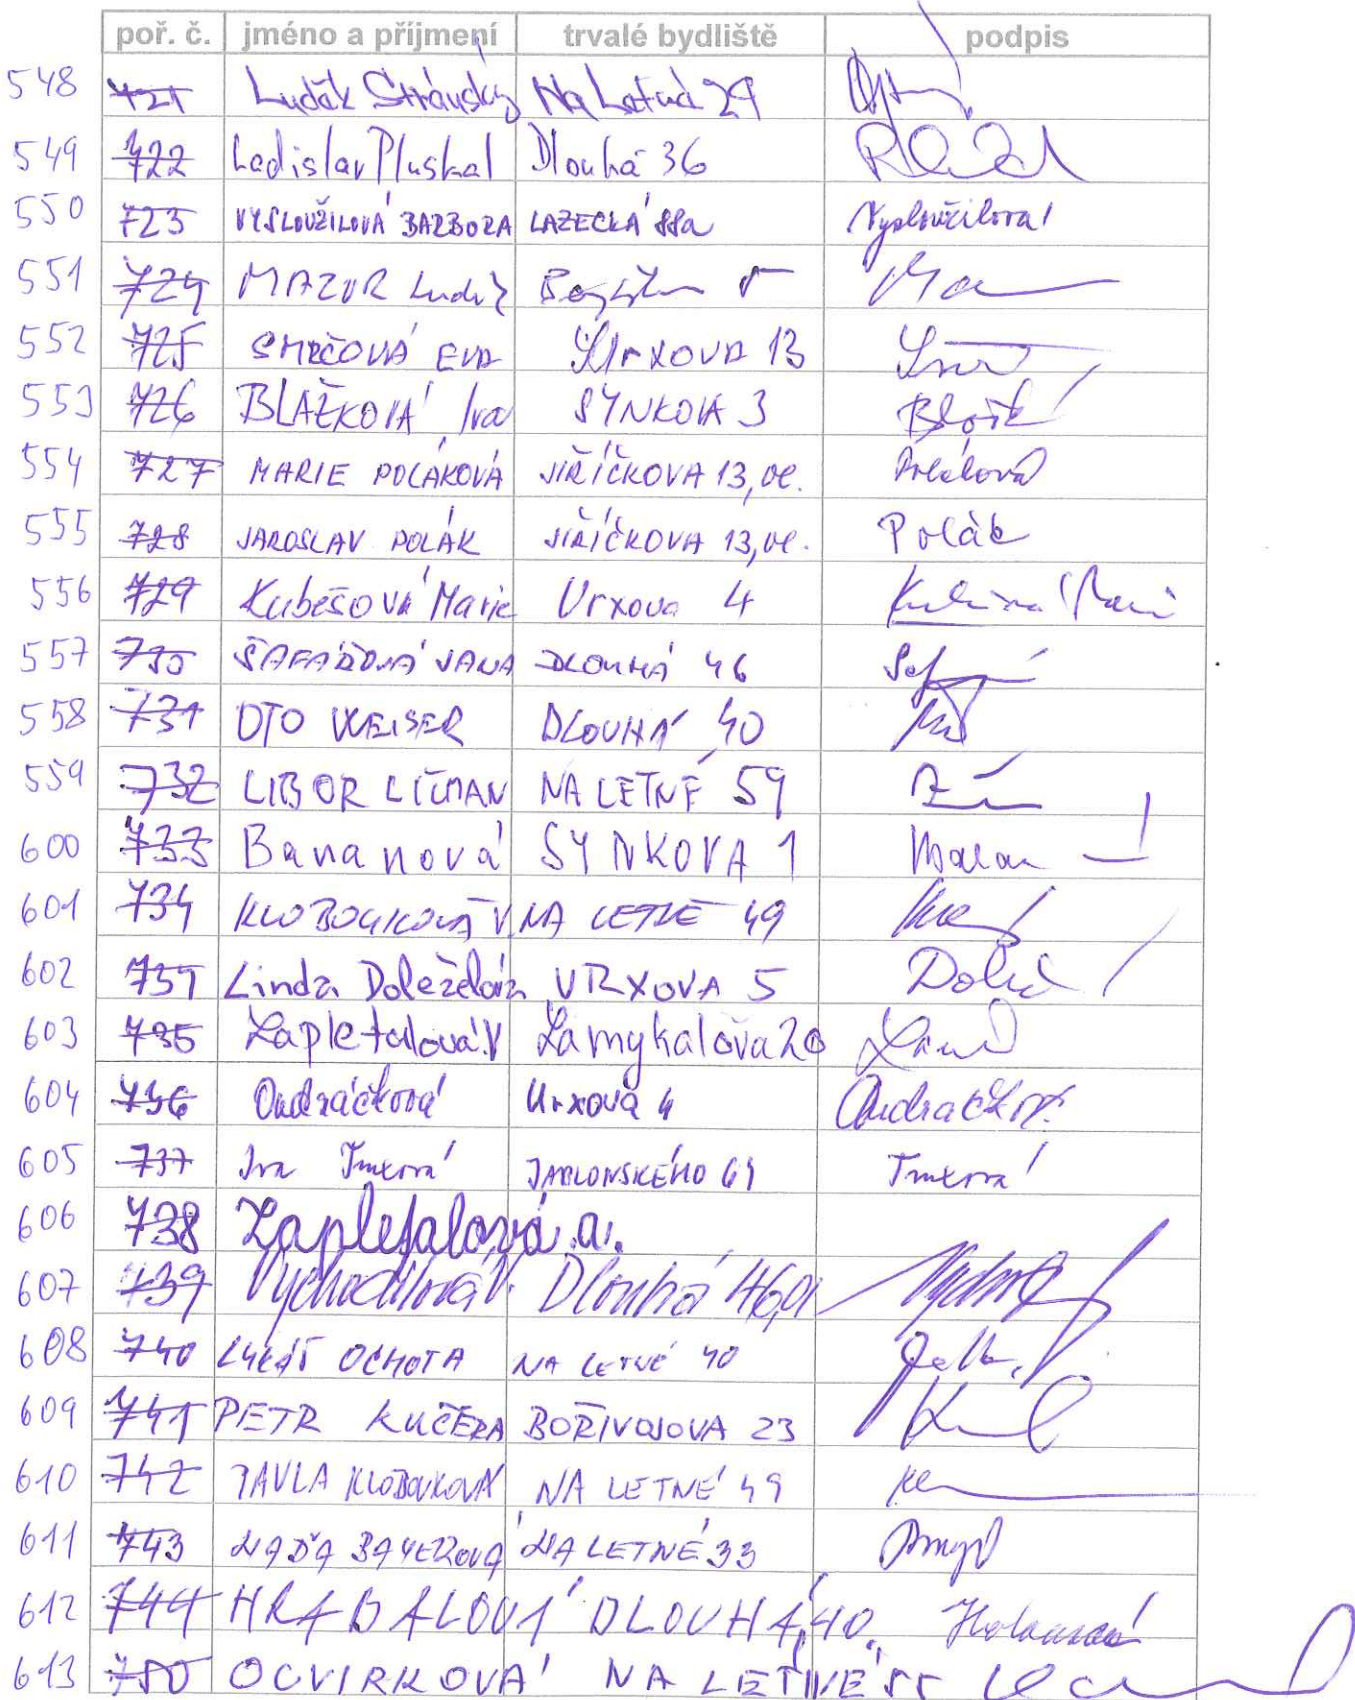 poř. č. jméno a příjmení trvalé bydliště podpis
548 721 Luděk Stránský Na Letná 29
549 722 Ladislav Pluskal Dlouhá 36
550 723 VYSLOUŽILOVÁ BARBORA LAZECKÁ 88a Vysloužilová
551 724 MAZUR
552 725 SMRČOVÁ EVA Urxova 13
553 726 BLAŽKOVÁ Iva SYNKOVA 3
554 727 MARIE POLÁKOVÁ JIŘÍČKOVA 13, Ol. Poláková
555 728 JAROSLAV POLÁK JIŘÍČKOVA 13, Ol. Polák
556 729 Kubešová Marie Urxova 4
557 730 ŠAFÁŘOVÁ JANA DLOUHÁ 46
558 731 OTO WEISER DLOUHÁ 40
559 732 LIBOR NA LETNÉ 59
600 733 Bananová SYNKOVA 1
601 734 KLOBOUKOVÁ V. NA LETNÉ 49
602 735 Linda Doleželová URXOVA 5
603 735 Zapletalová V Zamykalova 20
604 736 Ondráčková Urxová 4 Ondráčková
605 737 Iva JABLONSKÉHO
606 738 Zapletalová a.
607 739 Vychodilová V. Dlouhá 46, Ol
608 740 LUKÁŠ OCHOTA NA LETNÉ 40
609 741 PETR KUČERA BOŘIVOJOVA 23
610 742 PAVLA KLOBOUKOVÁ NA LETNÉ 49
611 743 NAĎA BAYEROVÁ NA LETNÉ 33
612 744 HRABALOVÁ DLOUHÁ 40.
613 750 OCVIRKOVÁ NA LETNÉ 55